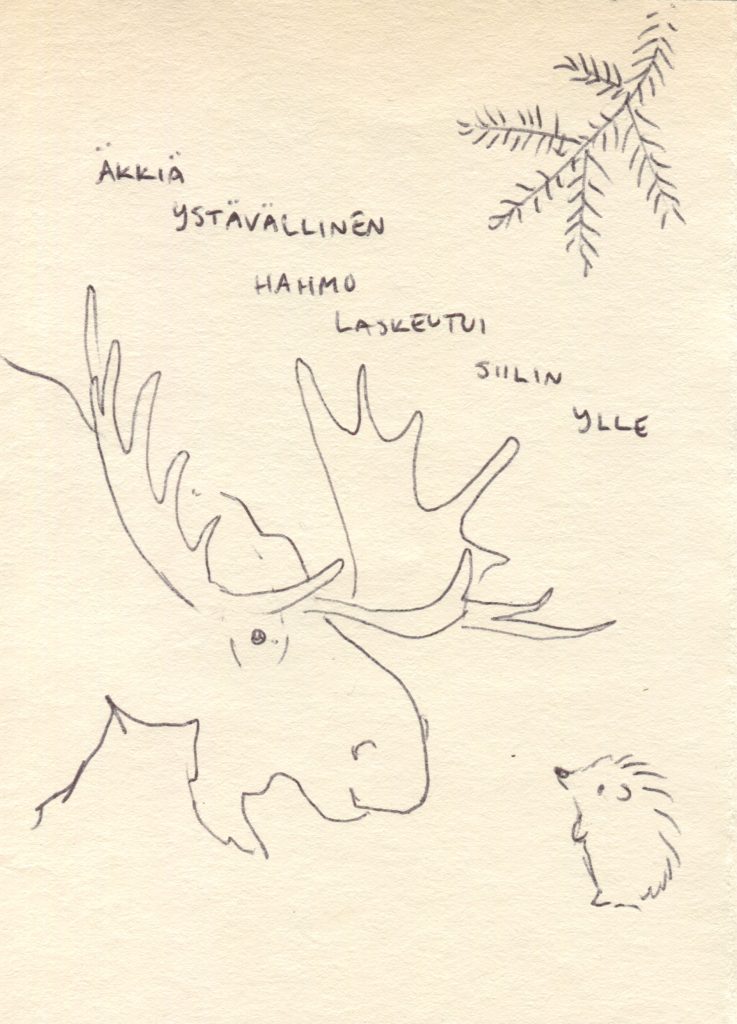 ÄKKIÄ
YSTÄVÄLLINEN
HAHMO
LASKEUTUI
SIILIN
YLLE